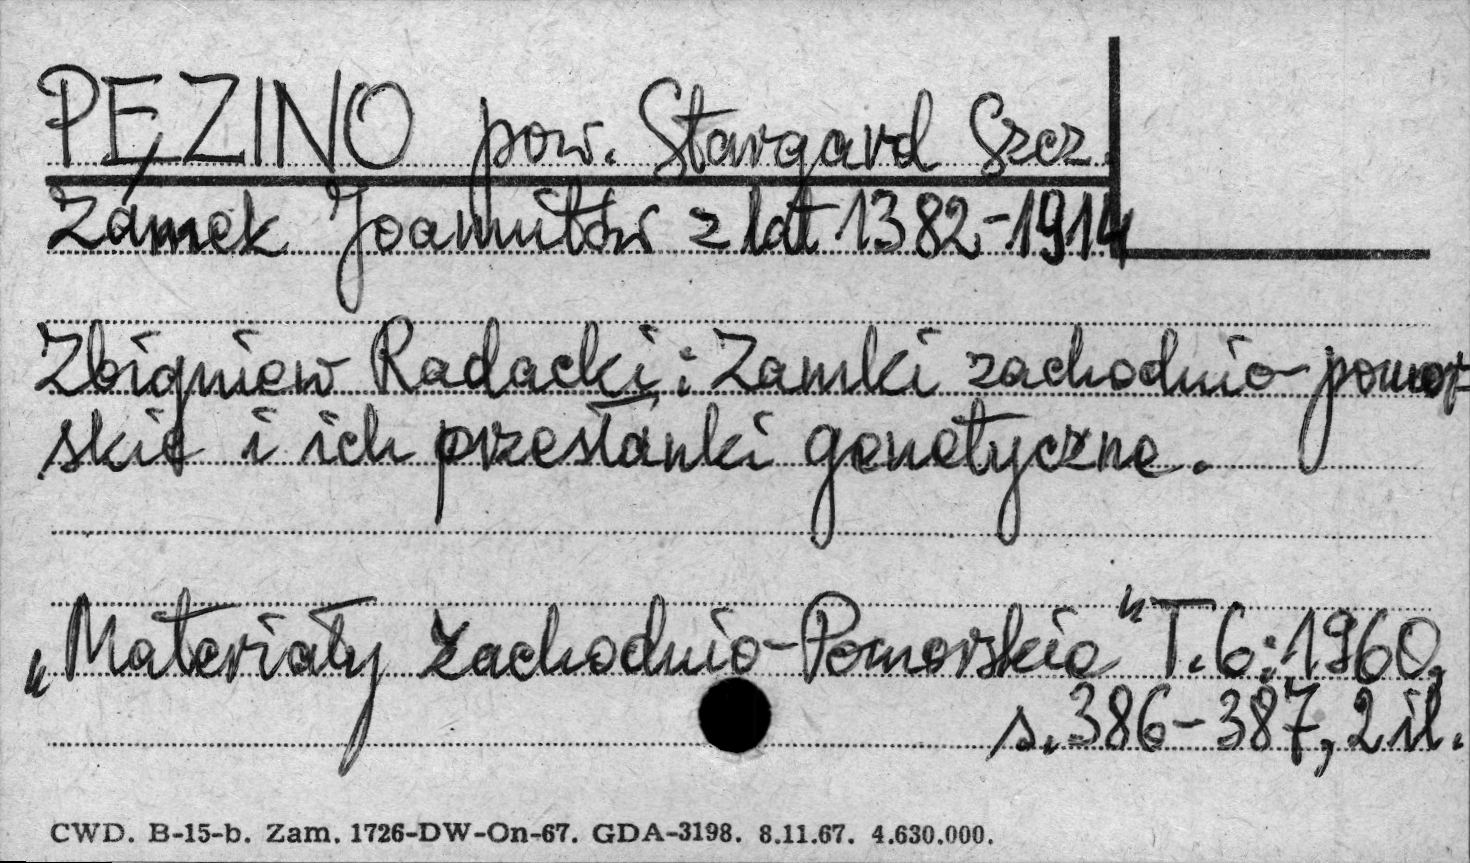 PĘZINO pow. Stargard Szcz.
Zamek Joannitów z lat 1382-1914
Zbigniew Radacki: Zamki zachodnio-pomor-
skie i ich przesłanki genetyczne.
„Materiały Zachodnio-Pomorskie" T.6:1960,
s.386-387, 2 il.
CWD. B-15-b. Zam. 1726-DW-On-67. GDA-3198. 8.11.67. 4.630.000.